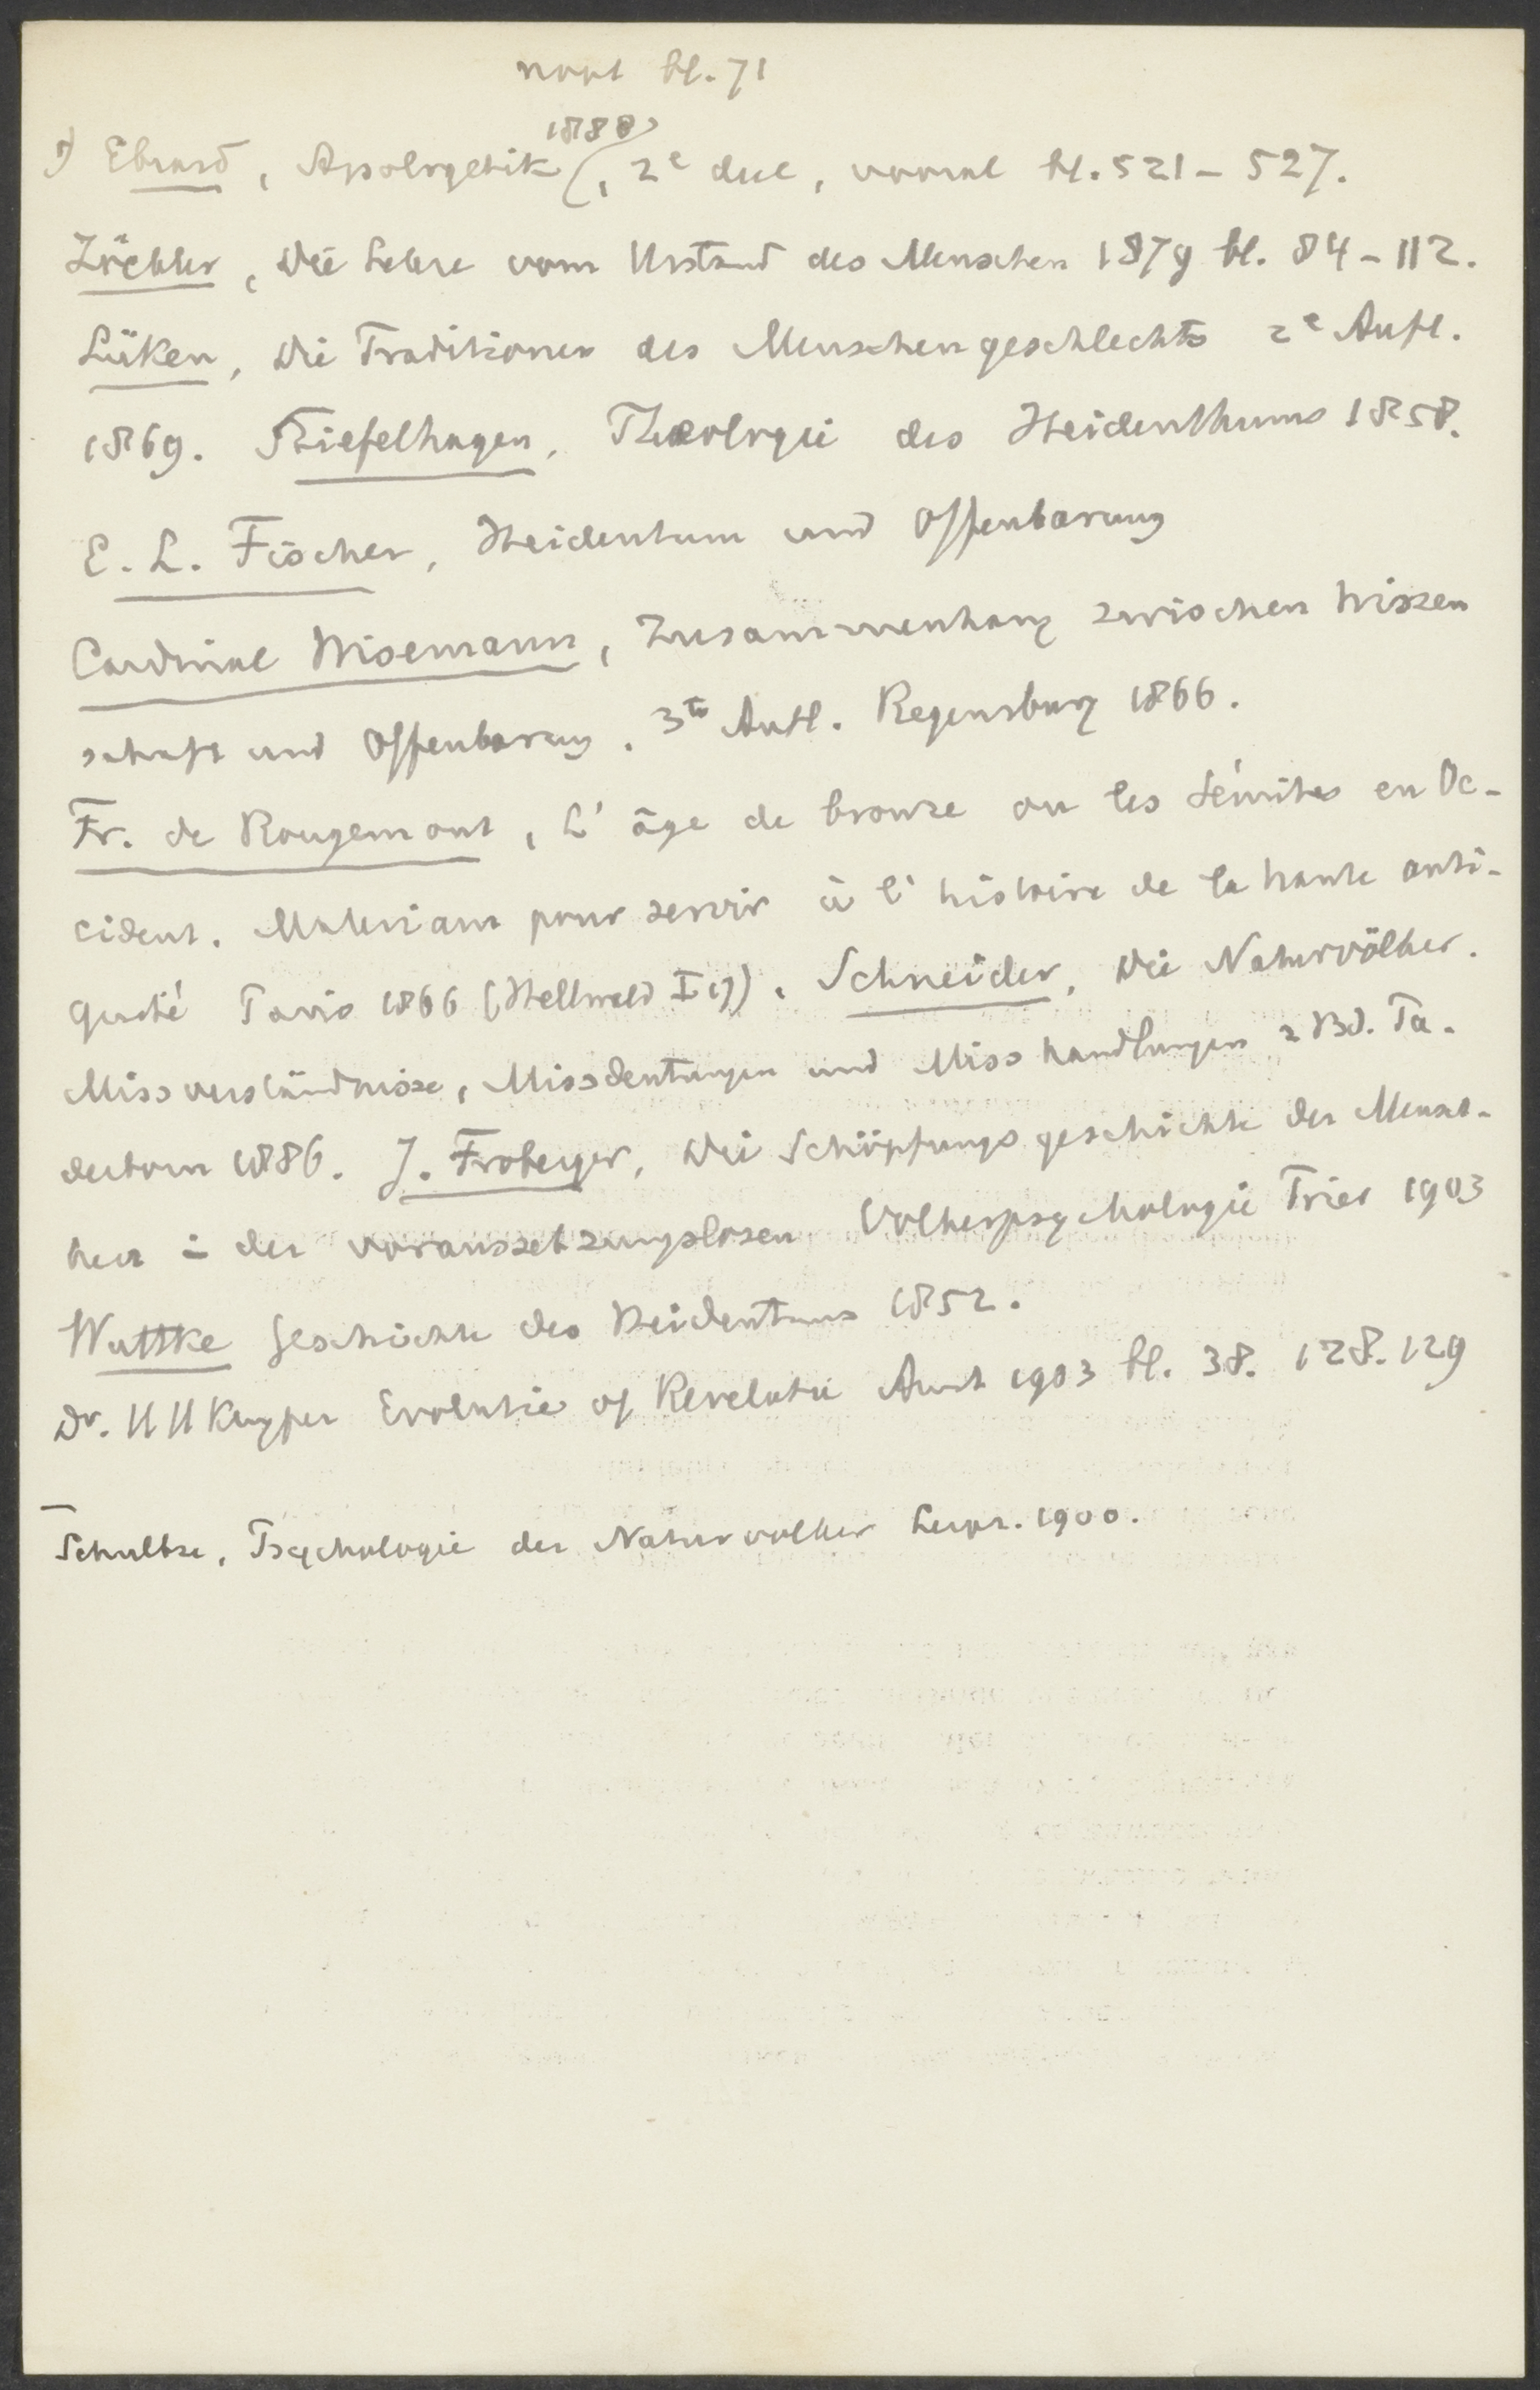 noot bl. 71
1) Ebrard, Apologetik (1880), 2e deel, vooral bl. 521 - 527.
Zöckler, Die Lehre vom Urstand des Menschen 1879 bl. 84 - 112.
Lüken, Die Traditionen des Menschengeschlechts 2e Aufl.
1869. Stiefelhagen, Theologie des Heidenthums 1858.
E. L. Fischer, Heidentum und Offenbarung
Cardinal Wisemann, Zusammenhang zwischen Wissen
schaft und Offenbarung. 3te Aufl. Regensburg 1866.
Fr. de Rougemont, L'âge de bronze ou les Sémites en Oc-
cident. Materiaux pour servir à l'histoire de la haute anti-
quité Paris 1866 (Hellwald I 19). Schneider, Die Naturvölker.
Missverständnisse, Missdeutungen und Misshandlungen 2 Bd. Pa-
derborn 1886. J. Froberger, Die Schöpfungsgeschichte der Mensch-
heit in der voraussetzungslosen Völkerpsychologie Trier 1903
Wuttke Geschichte des Heidentums 1852.
Dr. H H Kuyper Evolutie of Revelatie Amst 1903 bl. 38. 128. 129
Schultze, Psychologie der Naturvölker Leipz. 1900.